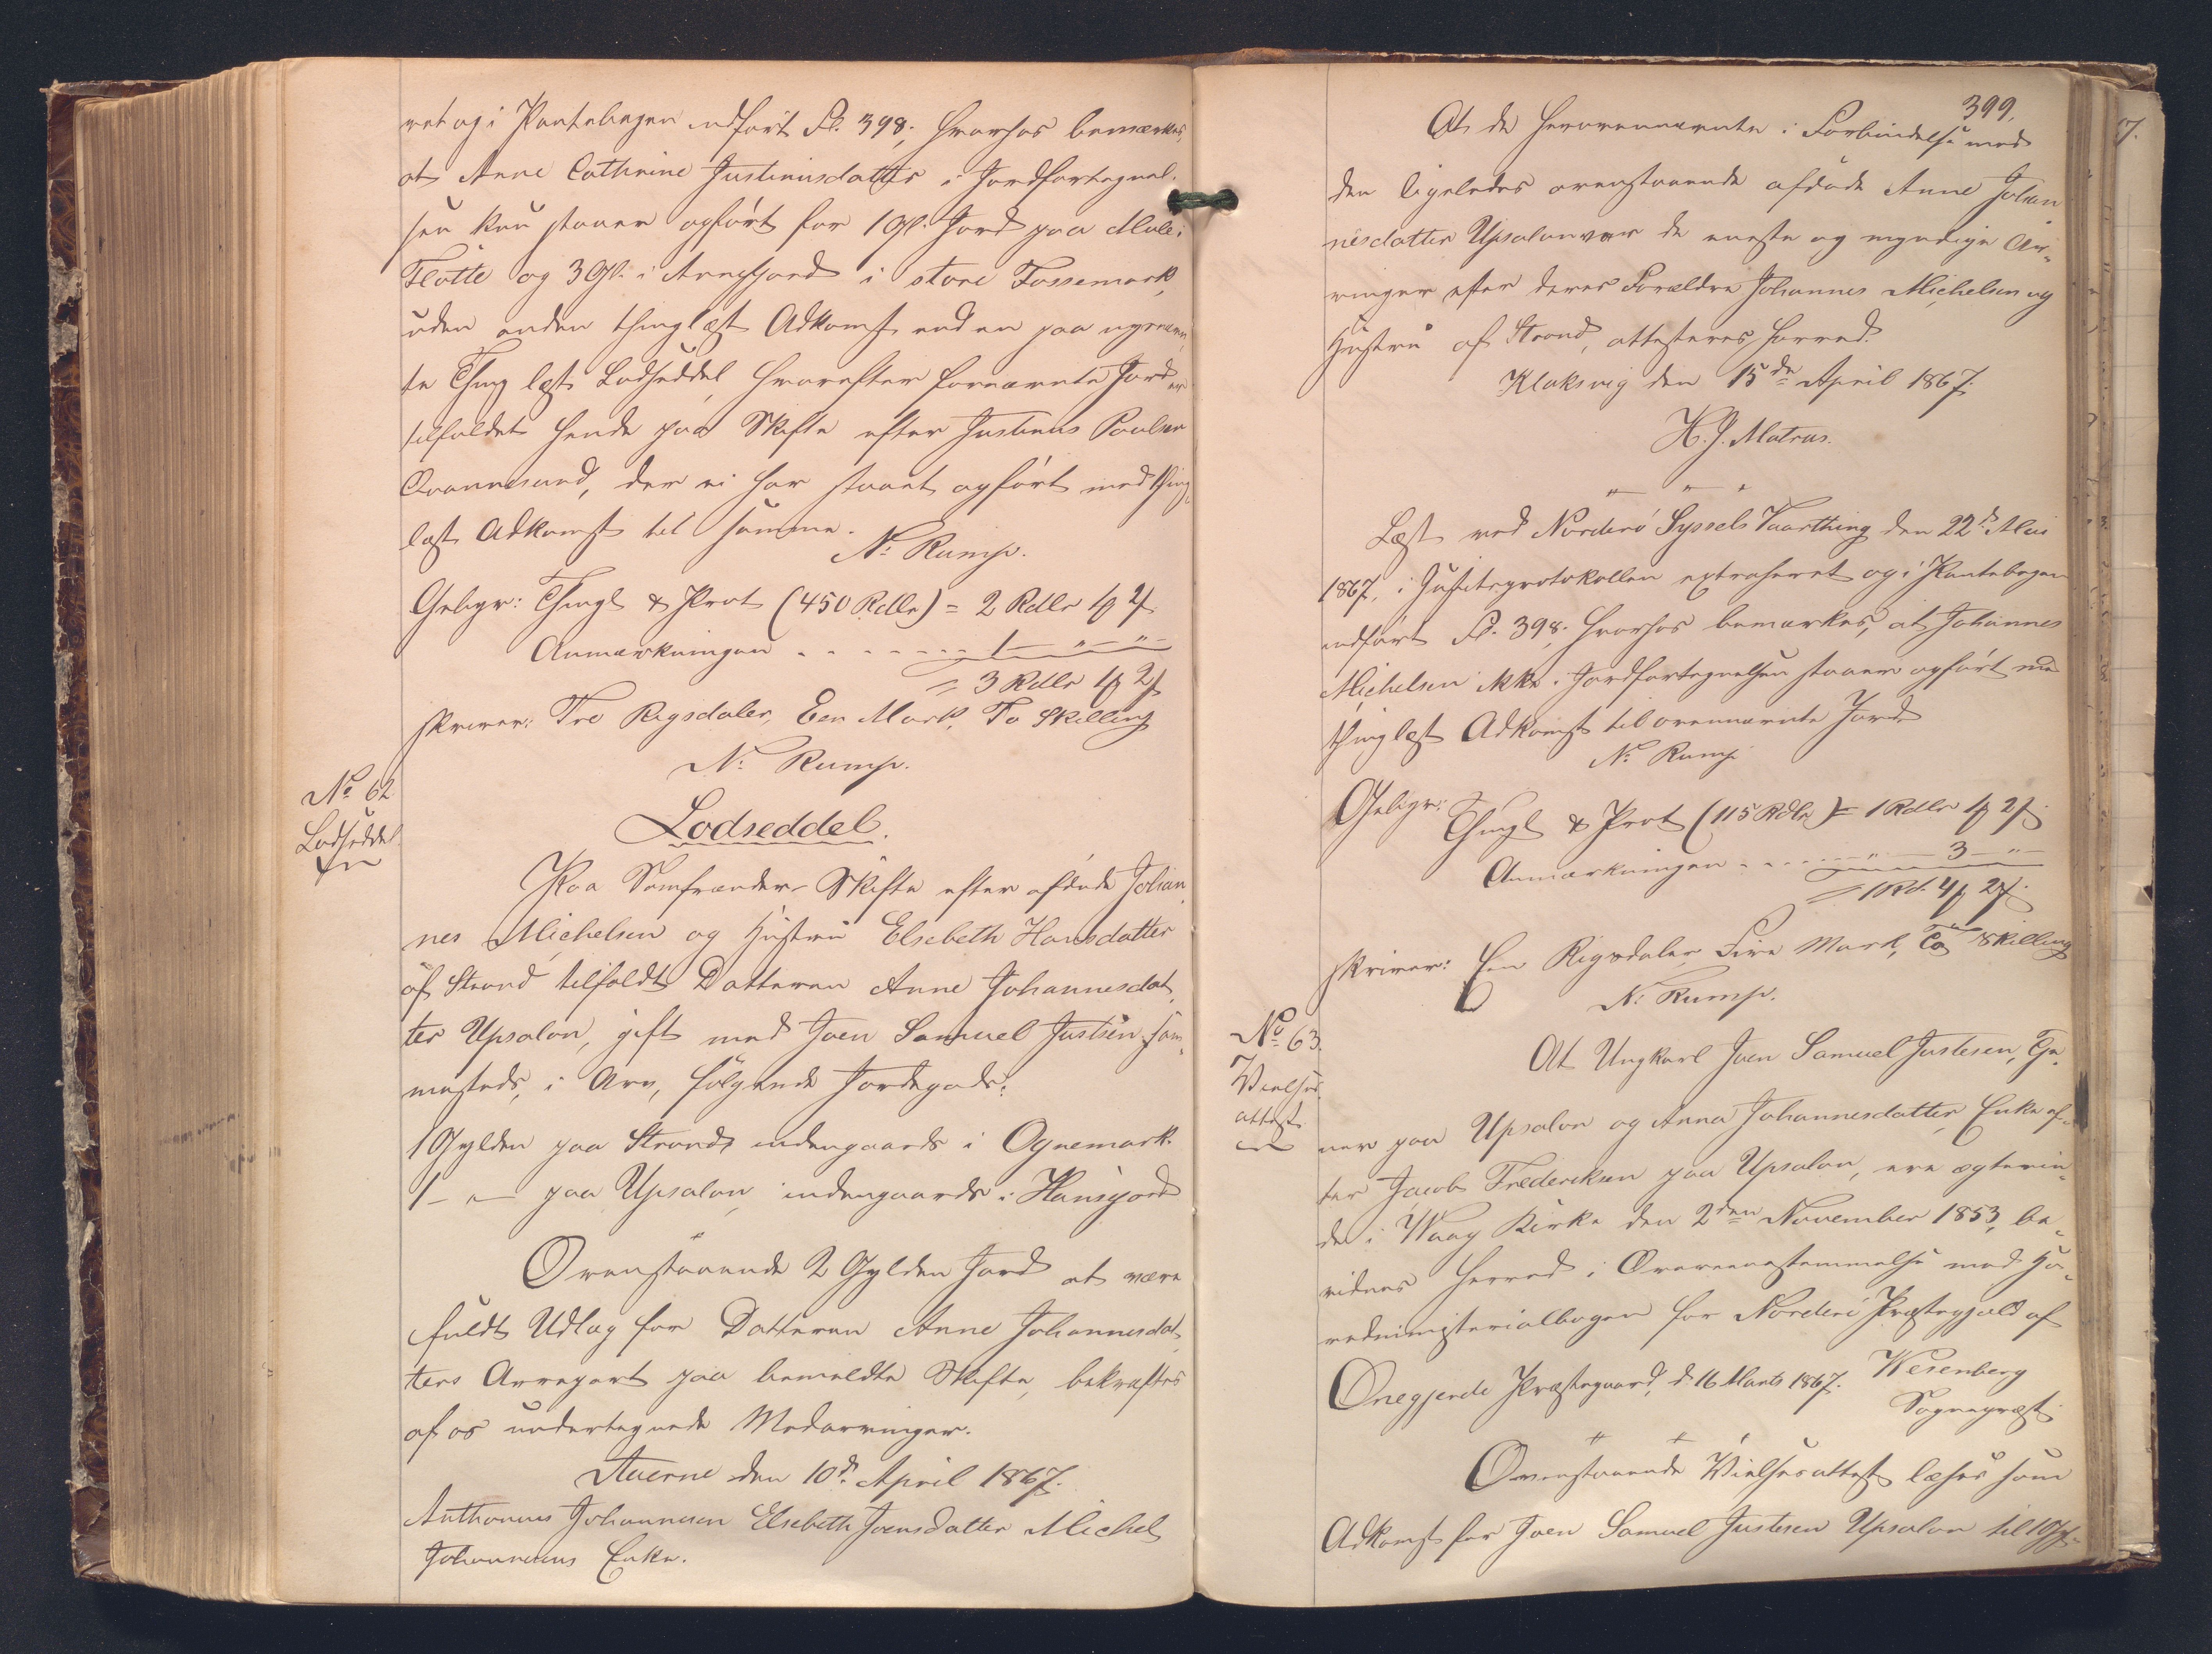 ret og i Pantebogen indført Fl. 398; hvorhos bemærkes,
at Anne Cathrine Justinusdatter i Jordfortegnel-
sen kun staaer opført for 1 Gl. Jord paa Mule i
Flötte og 3 Gl. i Arnefjord i store Fossemark,
uden anden thinglæst Adkomst end en paa nysnævn-
te Thing læst Lodseddel, hvorefter fornævnte Jord er
tilfaldet hende paa Skifte efter Justinus Poulsen
Qvannesund, der ei har staaet opført med thing-
læst Adkomst til samme.
N. Rump.
Gebyr: Thingl. & Prot (450 Rdlr) = 2 Rdlr 1 ꝟ 2 ß
Anmærkningen . . . . . . 1 — " — " —
= 3 Rdlr 1 ꝟ 2 ß
skriver: Tre Rigsdaler, Een Mark, To Skilling
N. Rump.
No 62
Lodseddel
Lodseddel.
Paa Samfrænder-Skifte efter afdøde Johan-
nes Michelsen og Hustru Elsebeth Hansdatter
af Strand tilfaldt Datteren Anne Johannesdat-
ter Upsalon, gift med Joen Samuel Justsen sam-
mesteds, i Arv, følgende Jordegods:
1 Gylden paa Strand indengaards i Ognemark
1 — " — paa Upsalon indengaards i Hansgjord
Ovenstaaende 2 Gylden Jord at være
fuldt Udlæg for Datteren Anne Johannesdat-
ters Arvepart paa bemeldte Skifte, bekræftes
af os undertegnede Medarvinger.
Auerne den 10de April 1867.
Anthonius Johannesen Elsebeth Joensdatter Michel
Johannesens Enke.
399.
At de herovennævnte i Forbindelse med
den ligeledes ovenstaaende afdøde Anne Johan
nesdatter Upsalon var de eneste og myndige Ar-
vinger efter deres Forældre Johannes Michelsen og
Hustru af Strand, attesteres herved.
Klaksvig den 15de April 1867.
H. J. Matras.
Læst ved Norderö Syssels Vaarthing den 22de Mai
1867, i Justitsprotokollen extraheret og i Pantebogen
indført Fl. 398, hvorhos bemærkes, at Johannes
Michelsen ikke i Jordfortegnelsen staaer opført med
thinglæst Adkomst til ovennævnte Jord.
N. Rump
Gebyr: Thingl & Prot (115 Rdlr) = 1 Rdlr 1 ꝟ 2 ß.
Anmærkningen . . . . . . " — 3 — " —
= 1 Rd. 4 ꝟ 2 ß.
skriver: Een Rigsdaler, Fire Mark, To Skilling
N. Rump.
No 63.
Vielses-
attest
At Ungkarl Joen Samuel Justesen, Tje-
ner paa Upsalon og Anna Johannesdatter, Enke ef-
ter Jacob Frederiksen paa Upsalon, ere ægtevie-
de i Waag Kirke den 2den November 1853, be-
vidnes herved i Overeensstemmelse med Ho-
vedministerialbogen for Norderö Præstegjeld af
Onegjerde Præstegaard, d. 16 Marts 1867. Wesenberg
Sognepræst
Ovenstaaende Vielsesattest læses som
Adkomst for Joen Samuel Justesen Upsalon til 1 Gl.